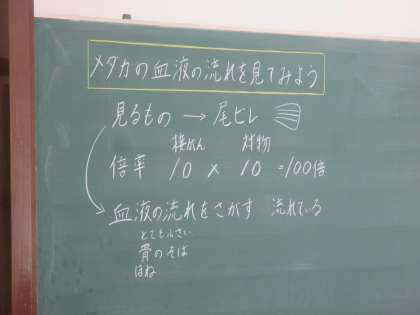 メダカの血液の流れを見てみよう
見るもの → 尾ヒレ
接がん 対物
倍率 10 × 10 =100倍
血液の流れをさがす 流れている
とても小さい
骨のそば
ほね